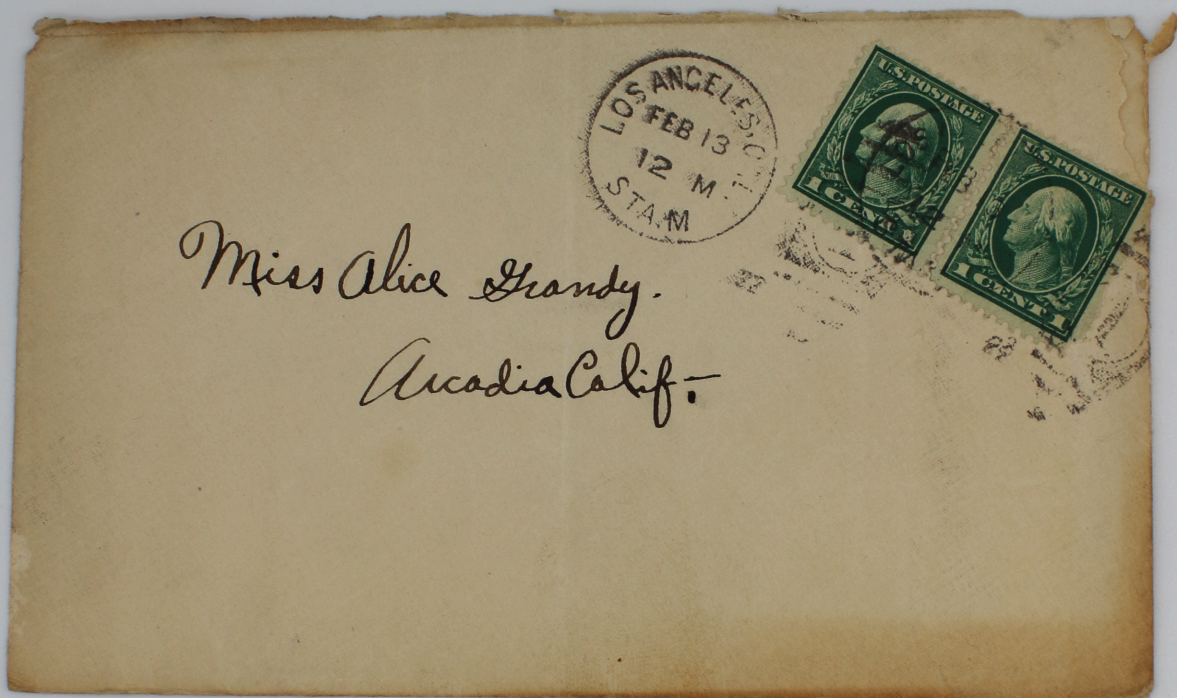 LOS ANGELES, CAL.
FEB 13
12 M
STA. M
U.S. POSTAGE
1 CENT 1
U.S. POSTAGE
1 CENT 1
Miss Alice Grandy.
Arcadia Calif-.